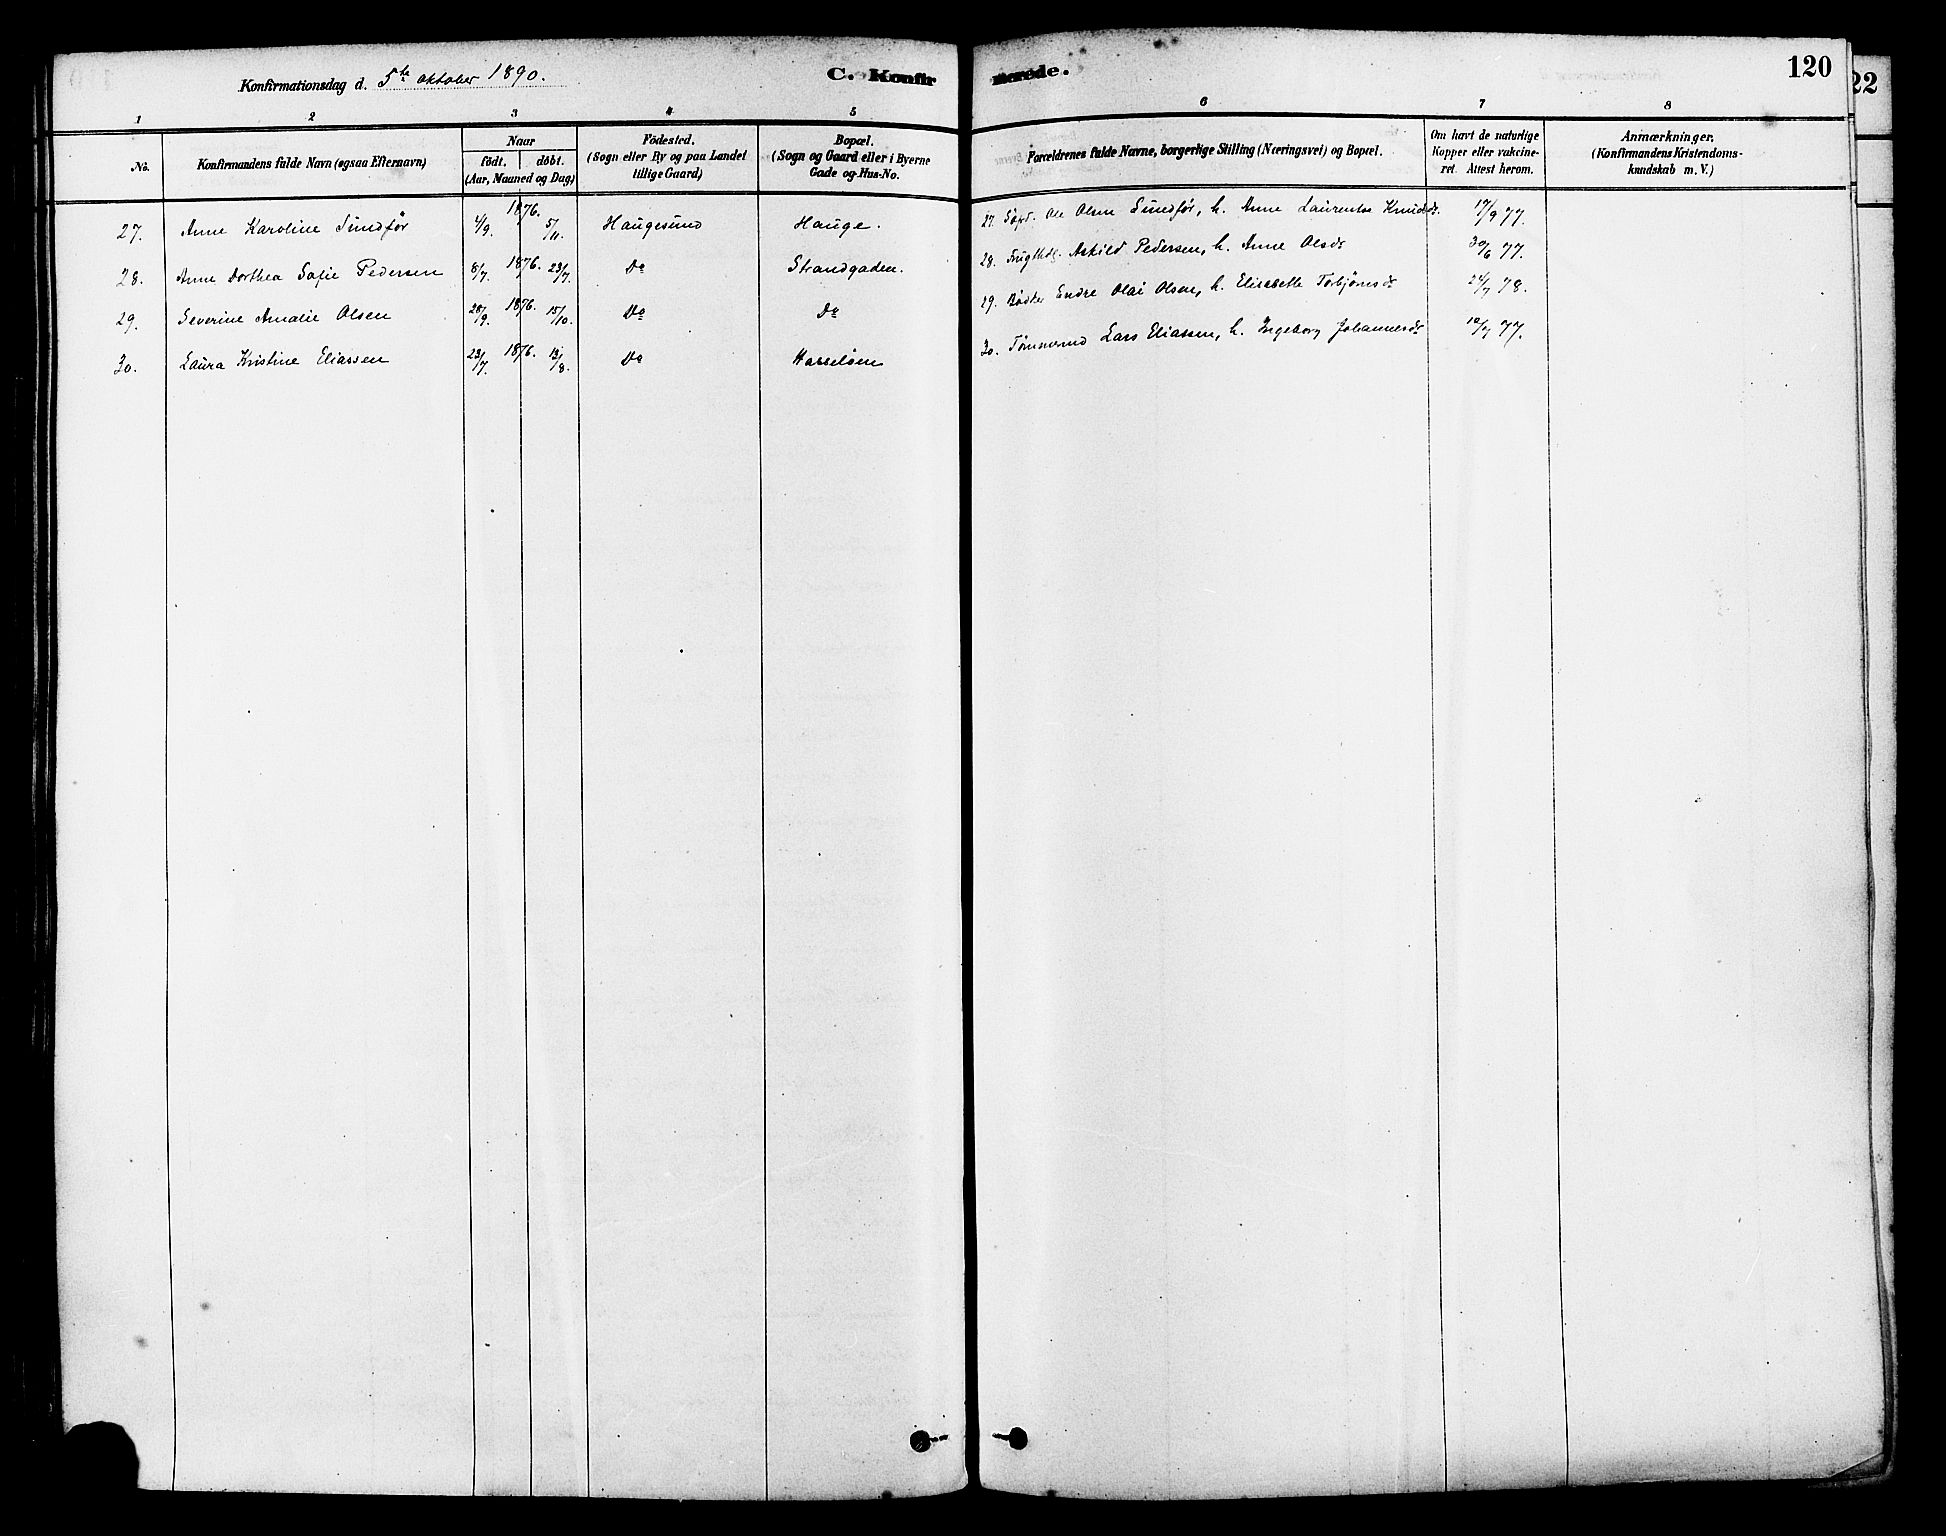 Konfirmationsdag d. 5te oktober 1890.
C. Konfir
merede.
120
22
1 2 3 4 5 6 7 8
No.
Konfirmandens fulde Navn (ogsaa Efternavn)
Naar
födt. döbt.
(Aar, Maaned og Dag)
Födested.
(Sogn eller By og paa Landet
tillige Gaard)
Bopæl.
(Sogn og Gaard eller i Byerne
Gade og Hus-No.
Forældrenes fulde Navne, borgerlige Stilling (Næringsvei) og Bopæl.
Om havt de naturlige
Kopper eller vakcine-
ret. Attest herom.
Anmærkninger.
(Konfirmandens Kristendoms-
kundskab m. V.)
27. Anne Karoline Sundför 4/9. 1876. 5/11. Haugesund Hauge. 27. Ole Olsen Sundför, h. Anne Laurentse Knudsdr. 17/9 77.
28. Anne Dorthea Sofie Pedersen 8/7. 1876. 23/7 Do Strandgaden. 28. Askild Pedersen, h. Anne Olsdr 30/6 77.
29. Severine Amalie Olsen 28/9. 1876. 15/10. Do Do 29. Bödker Endre Olai Olsen, h. Elisabeth Torbjörnsdr 24/7 78.
30. Laura Kristine Eliassen 23/7. 1876. 13/8. Do Hasselöen 30. Tömmermd Lars Eliassen, h. Ingeborg Johannesdr 10/7 77.